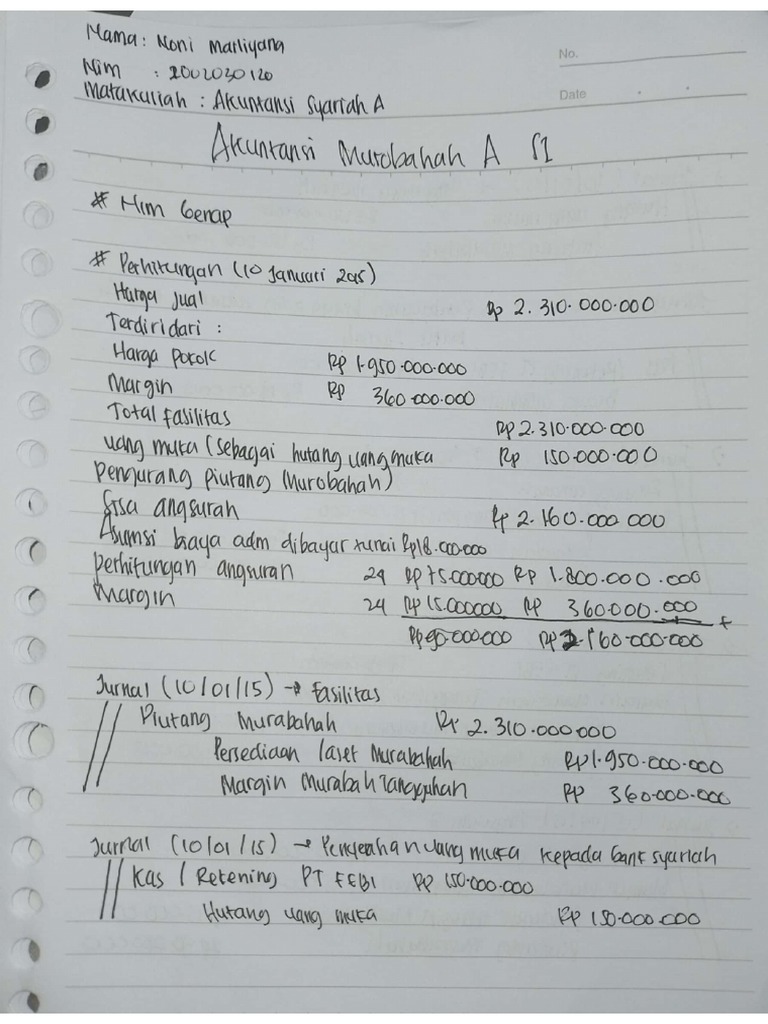 Nama : Noni Marliyana
No.
Nim : 2002030120
Date
Matakuliah : Akuntansi Syariah A
Akuntansi Murobahah A S1
# Nim Genap
# Perhitungan (10 Januari 2015)
Harga Jual Rp 2.310.000.000
Terdiri dari :
Harga Pokok Rp 1.950.000.000
Margin Rp 360.000.000
Total fasilitas Rp 2.310.000.000
uang muka (sebagai hutang uang muka Rp 150.000.000
Pengurang piutang (Murobahah)
Sisa angsurah Rp 2.160.000.000
Asumsi biaya adm dibayar tunai Rp 18.000.000
Perhitungan angsuran 24 Rp 75.000000 Rp 1.800.000.000
Margin 24 Rp 15.000000 Rp 360.000.000 +
Rp 90.000000 Rp 2.160.000.000
Jurnal (10/01/15) → Fasilitas
// Piutang Murabahah Rp 2.310.000.000
Persediaan / aset Murabahah Rp 1.950.000.000
Margin Murabah Tangguhan Rp 360.000.000
Jurnal (10/01/15) → Penyerahan uang muka kepada bank syariah
// Kas / Rekening PT FEBI Rp 150.000.000
Hutang uang muka Rp 150.000.000